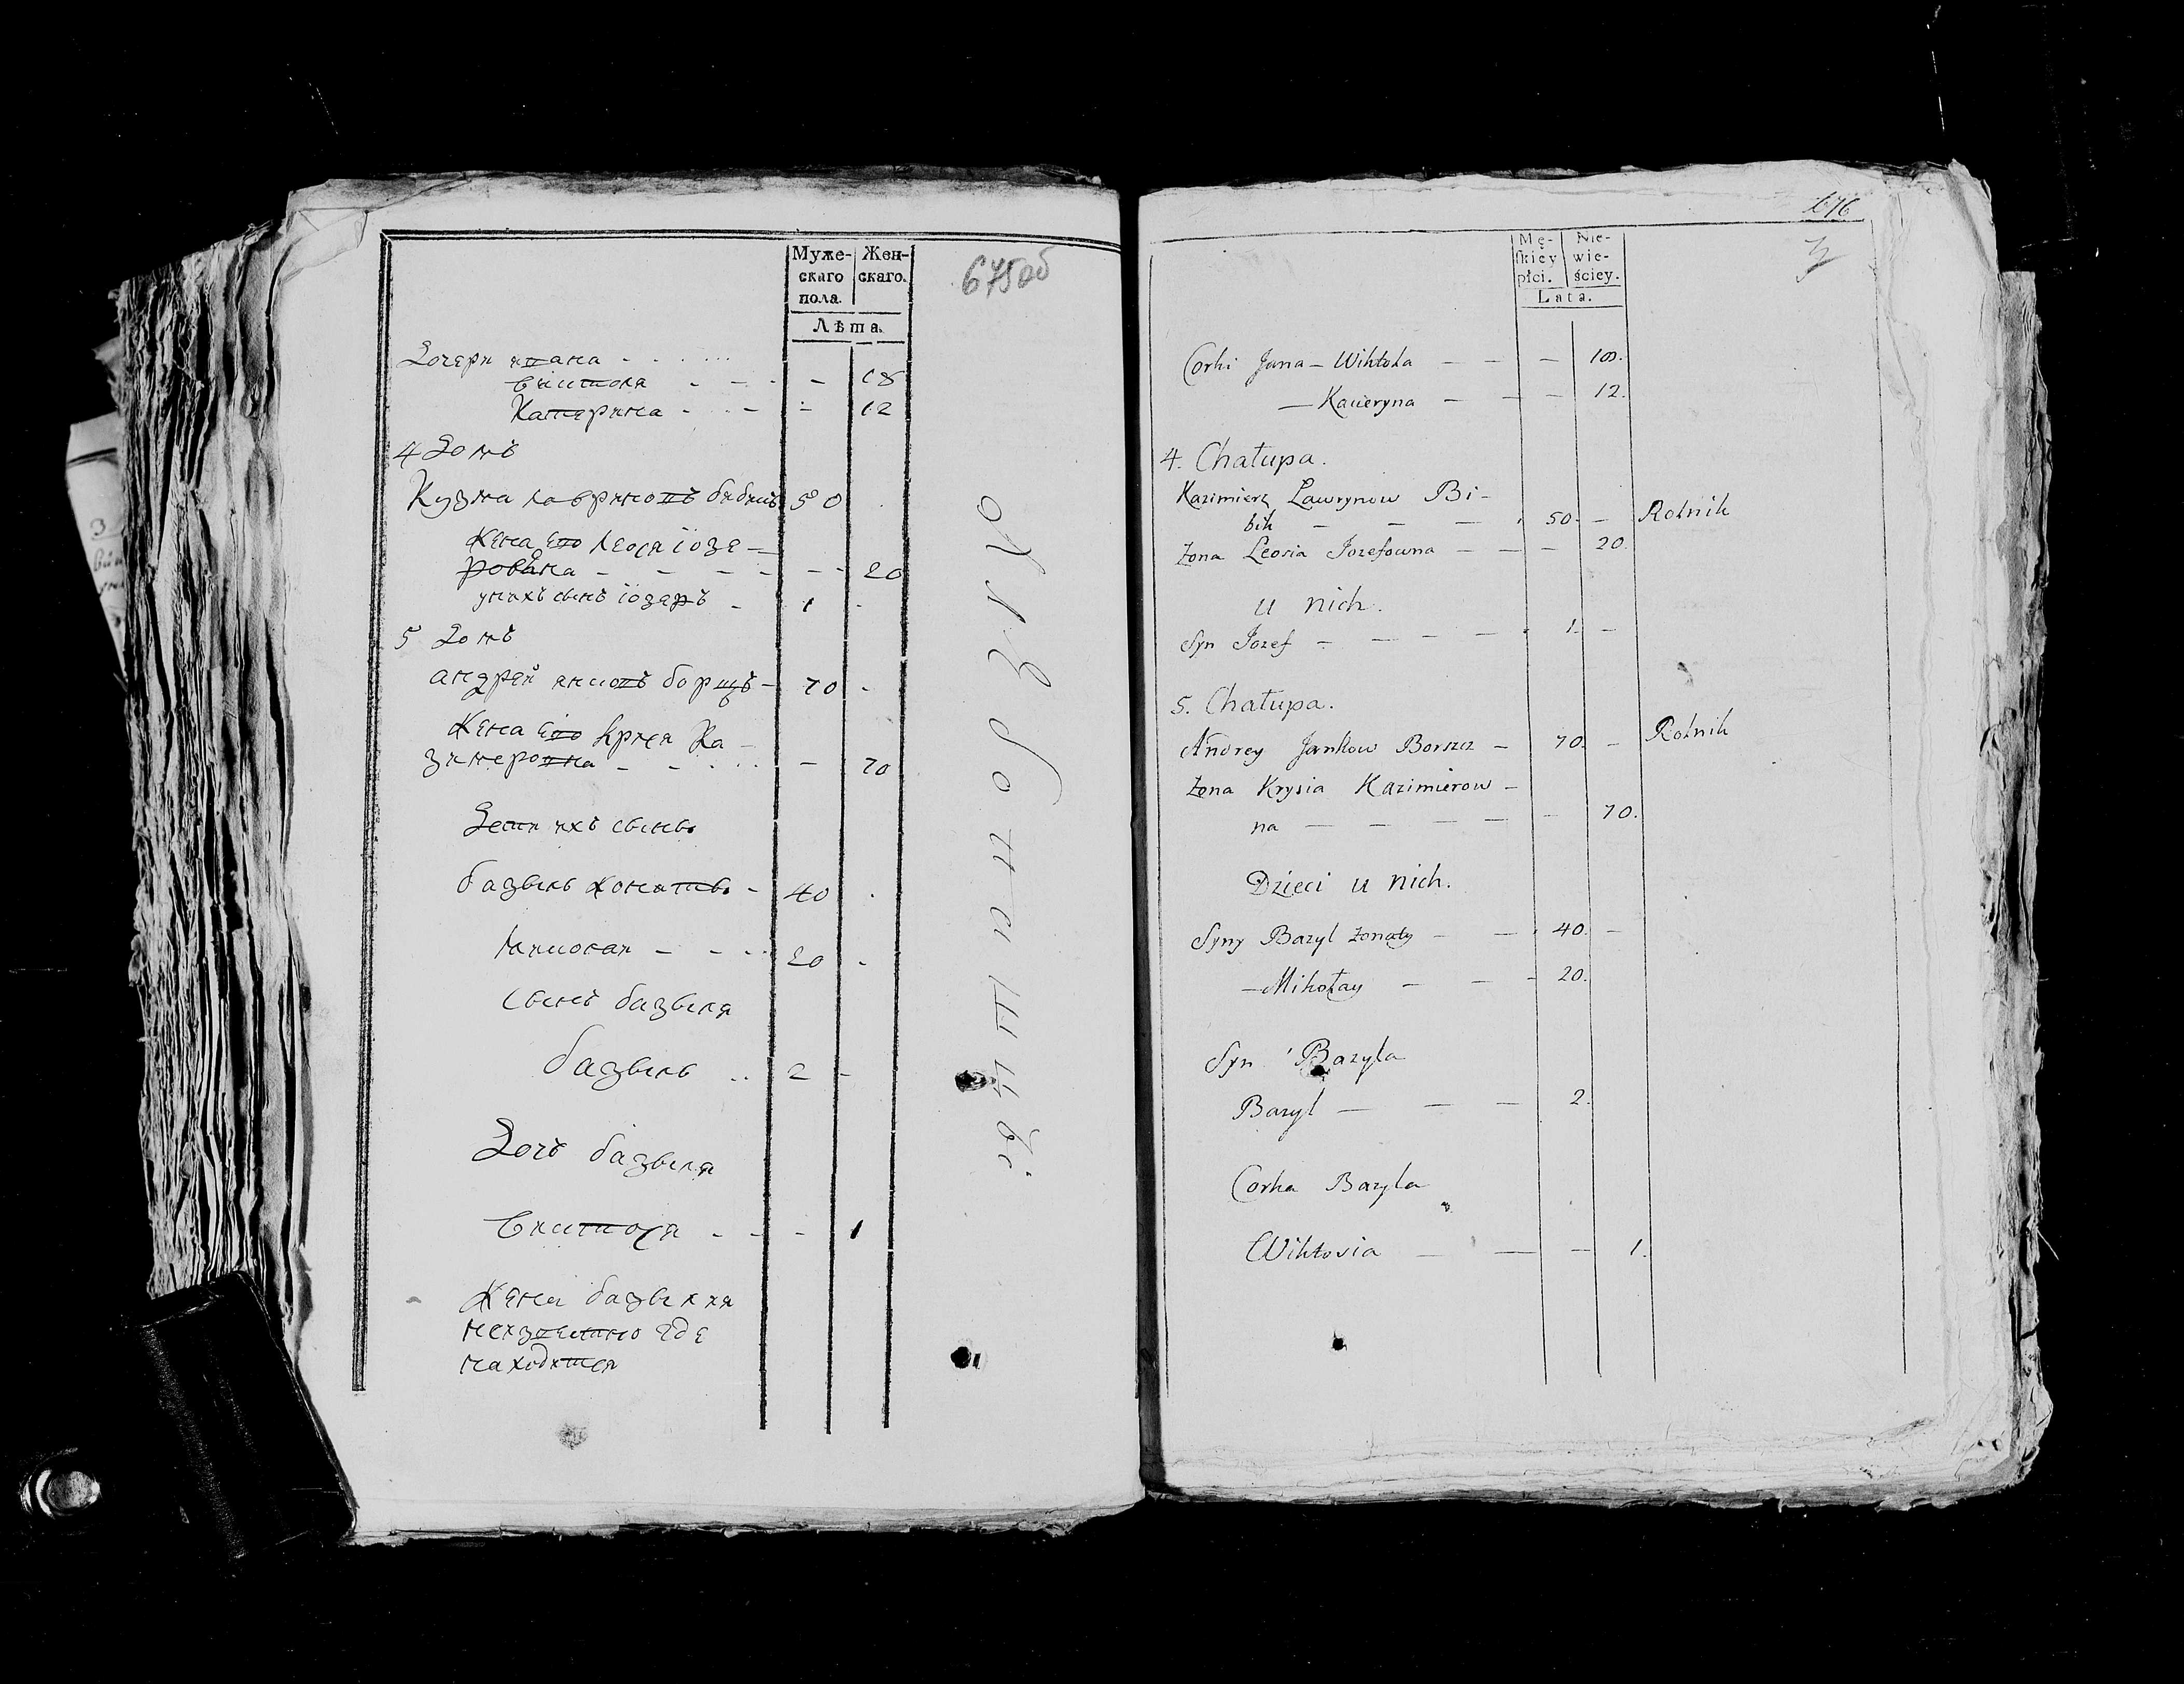 Муже-
скаго
пола.
Жен-
скаго.
Лѣта.
675об
Дочери ивана - - - - -
виктоля - - - - 18
Катерина - - - - 12
4 Домъ
Кузма лавриновъ бибикъ 50
жена его леося іозе-
ровина - - - - - - 20
у нихъ сынъ іозефъ - 1 -
5 Домъ
андрей янковъ борщъ - 70 -
Жена его Крися Ка-
зимеровна - - - - - - 70
Дети ихъ сынь
базыль жонатъ - 40 -
миколай - - - - 20 -
сынъ базыля
базыль .. 2 -
Дочь базыля
виктося - - - 1
Жена базылля
неизвестно где
находится
676
Mę-
skiey
płci.
Nie-
wie-
ściey.
Lata.
Corki Jana - Wiktola - - - 18.
- Kacieryna - - - 12.
4. Chałupa.
Kazimierz Lawrynow Bi-
bik - - - 50. - Rolnik
żona Leosia Jozefowna - - - 20.
u nich.
Syn Jozef - - - - - 1. -
5. Chałupa.
Andrey Jankow Borszcz - 70. - Rolnik
żona Krysia Kazimierow -
na - - - - - 70.
Dzieci u nich.
Syny Bazyl żonaty - - 40. -
- Mikołay - - - 20.
Syn Bazyla
Bazyl - - - 2.
Corka Bazyla
Wiktosia - - - 1.